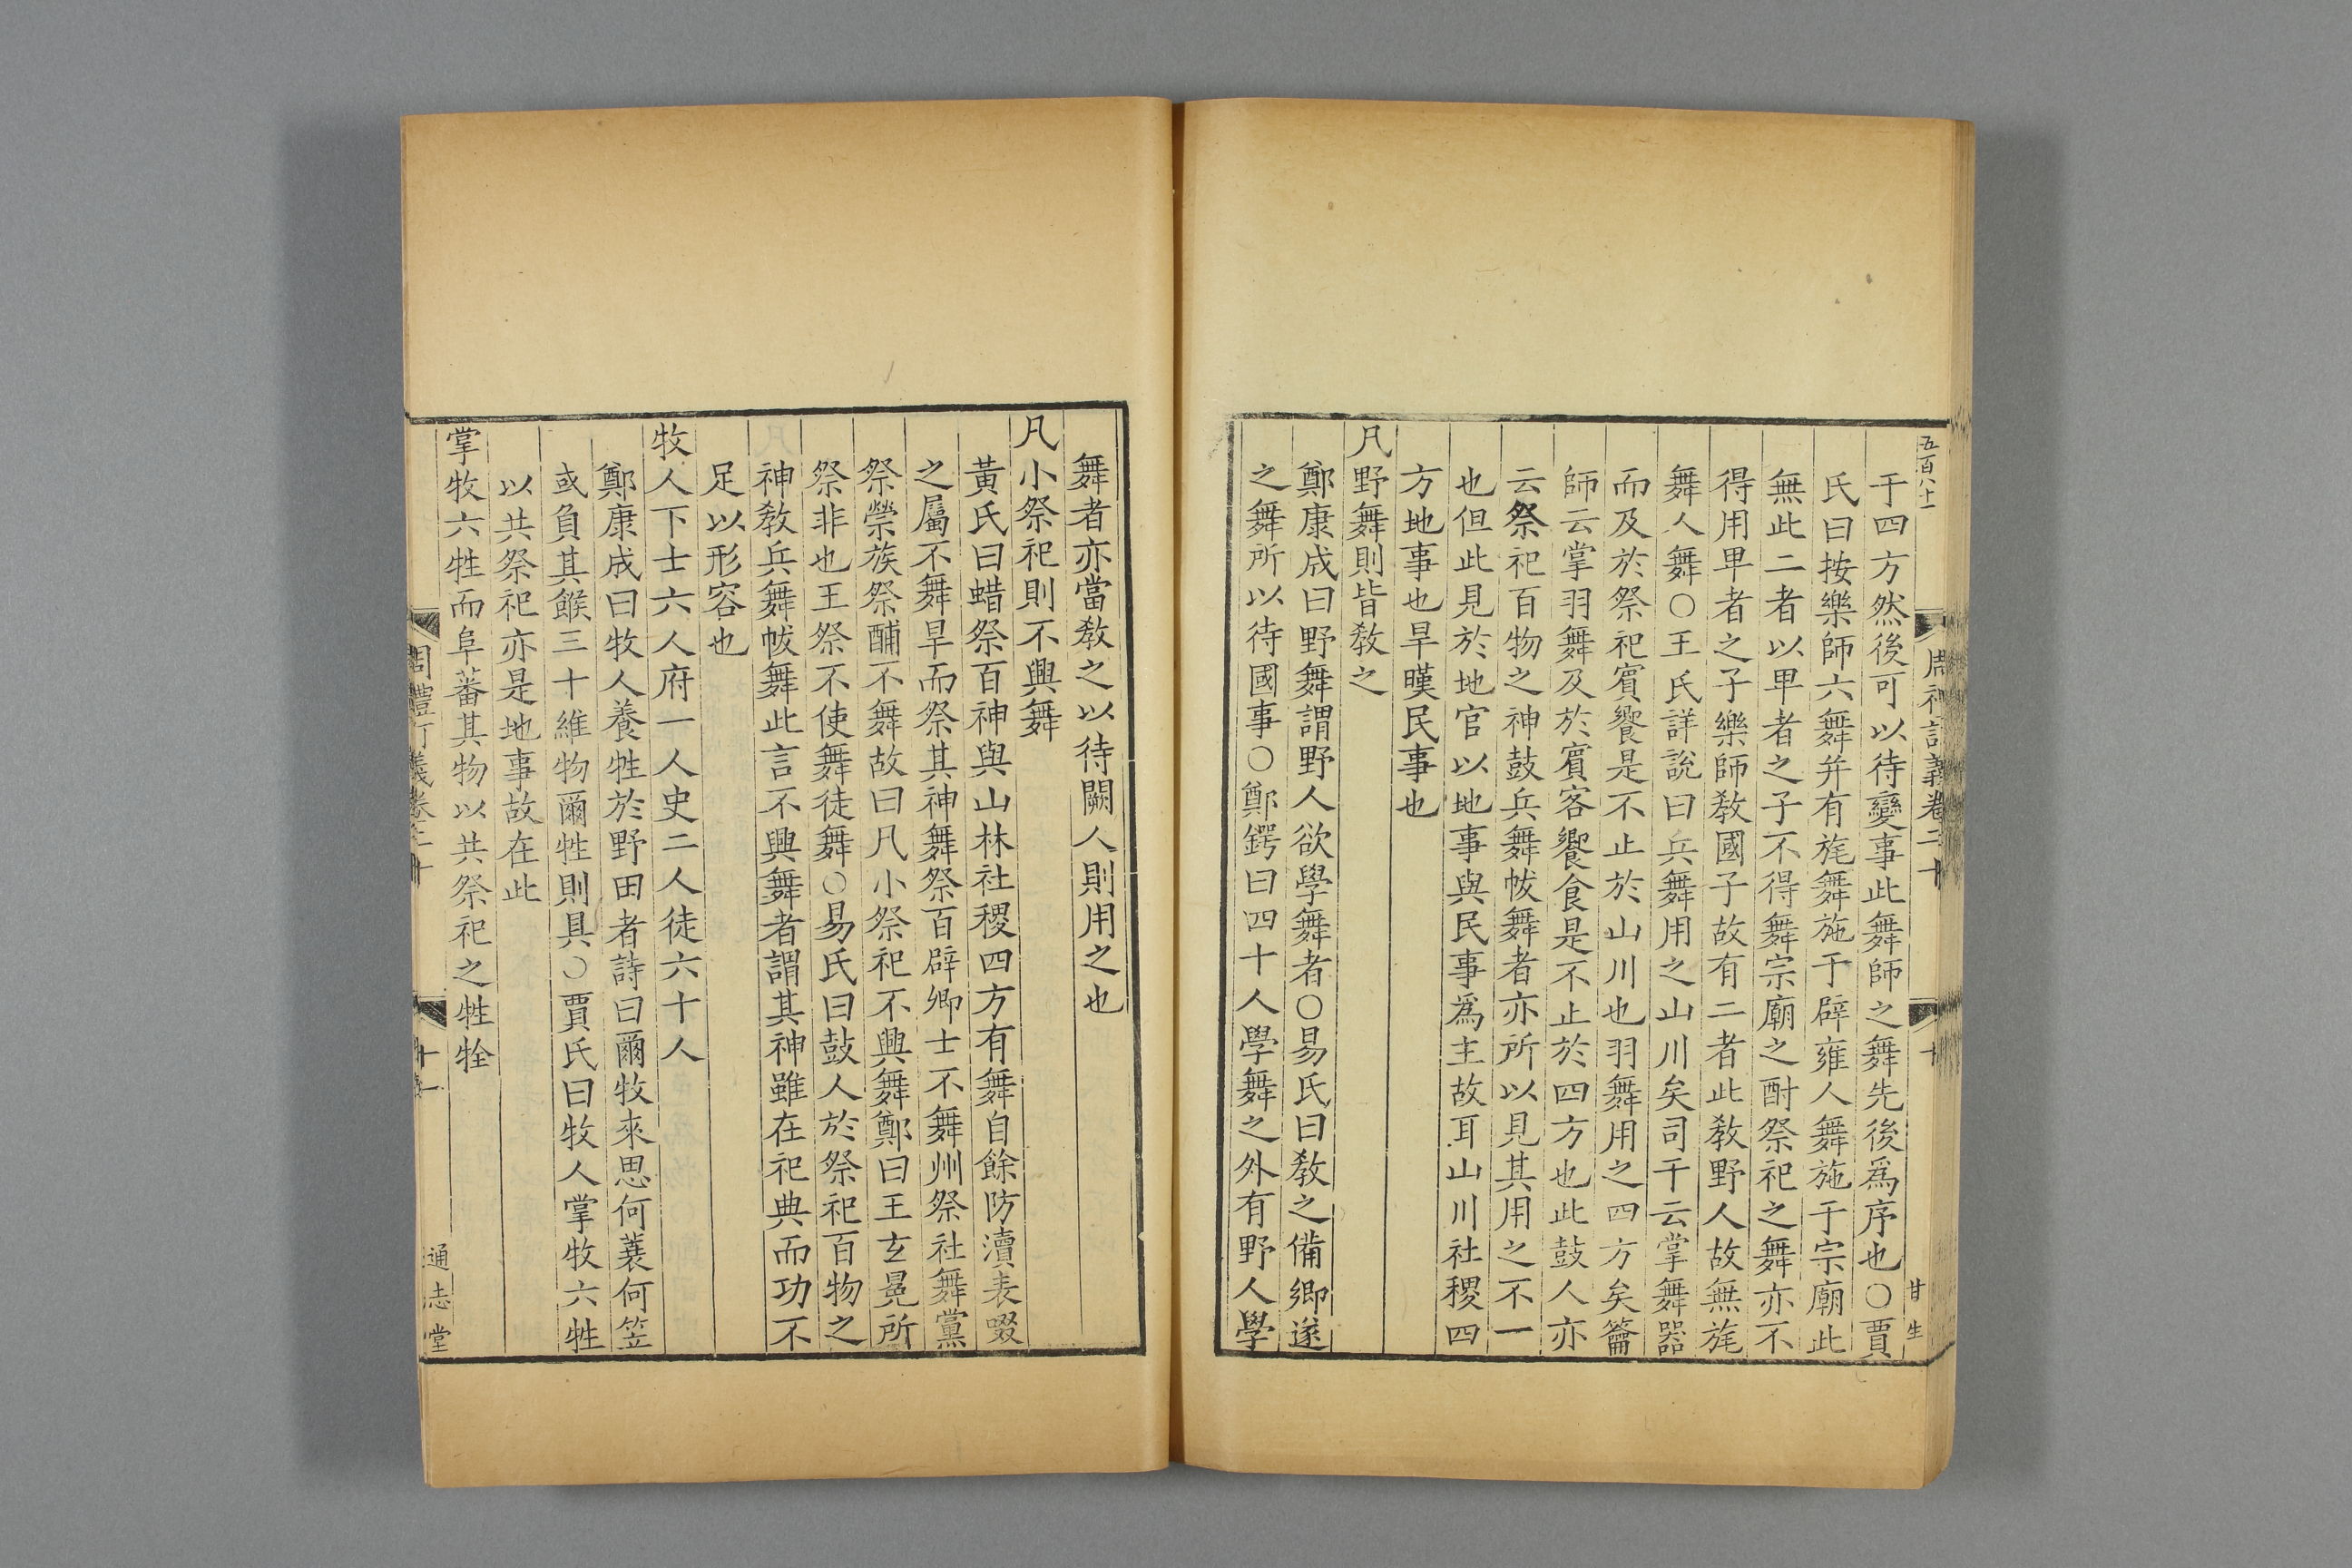 五百八十一
周禮訂義卷二十
十
甘生
于四方然後可以待變事此舞師之舞先後爲序也○賈
氏曰按樂師六舞并有旄舞施于辟雍人舞施于宗廟此
無此二者以卑者之子不得舞宗廟之酎祭祀之舞亦不
得用卑者之子樂師敎國子故有二者此敎野人故無旄
舞人舞○王氏詳說曰兵舞用之山川矣司干云掌舞器
而及於祭祀賓饗是不止於山川也羽舞用之四方矣籥
師云掌羽舞及於賓客饗食是不止於四方也此鼓人亦
云祭祀百物之神鼓兵舞帗舞者亦所以見其用之不一
也但此見於地官以地事與民事爲主故耳山川社稷四
方地事也旱暵民事也
凡野舞則皆敎之
鄭康成曰野舞謂野人欲學舞者○易氏曰敎之備卿遂
之舞所以待國事○鄭鍔曰四十人學舞之外有野人學
舞者亦當敎之以待闕人則用之也
凡小祭祀則不興舞
黃氏曰蜡祭百神與山林社稷四方有舞自餘防瀆表畷
之屬不舞旱而祭其神舞祭百辟卿士不舞州祭社舞黨
祭禜族祭酺不舞故曰凡小祭祀不興舞鄭曰王玄冕所
祭非也王祭不使舞徒舞○易氏曰鼓人於祭祀百物之
神敎兵舞帗舞此言不興舞者謂其神雖在祀典而功不
足以形容也
牧人下士六人府一人史二人徒六十人
鄭康成曰牧人養牲於野田者詩曰爾牧來思何蓑何笠
或負其餱三十維物爾牲則具○賈氏曰牧人掌牧六牲
以共祭祀亦是地事故在此
掌牧六牲而阜蕃其物以共祭祀之牲牷
周禮訂義卷二十
十一
通志堂